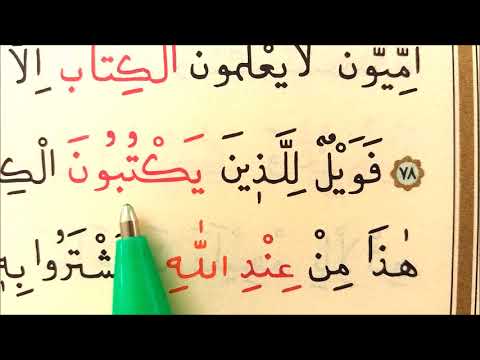 اُمِّيُّونَ لَا يَعْلَمُونَ الْكِتَابَ اِلَّا
٧٨ فَوَيْلٌ لِلَّذ۪ينَ يَكْتُبُونَ الْكِ
هٰذَا مِنْ عِنْدِ اللّٰهِ شْتَرُوا بِه۪